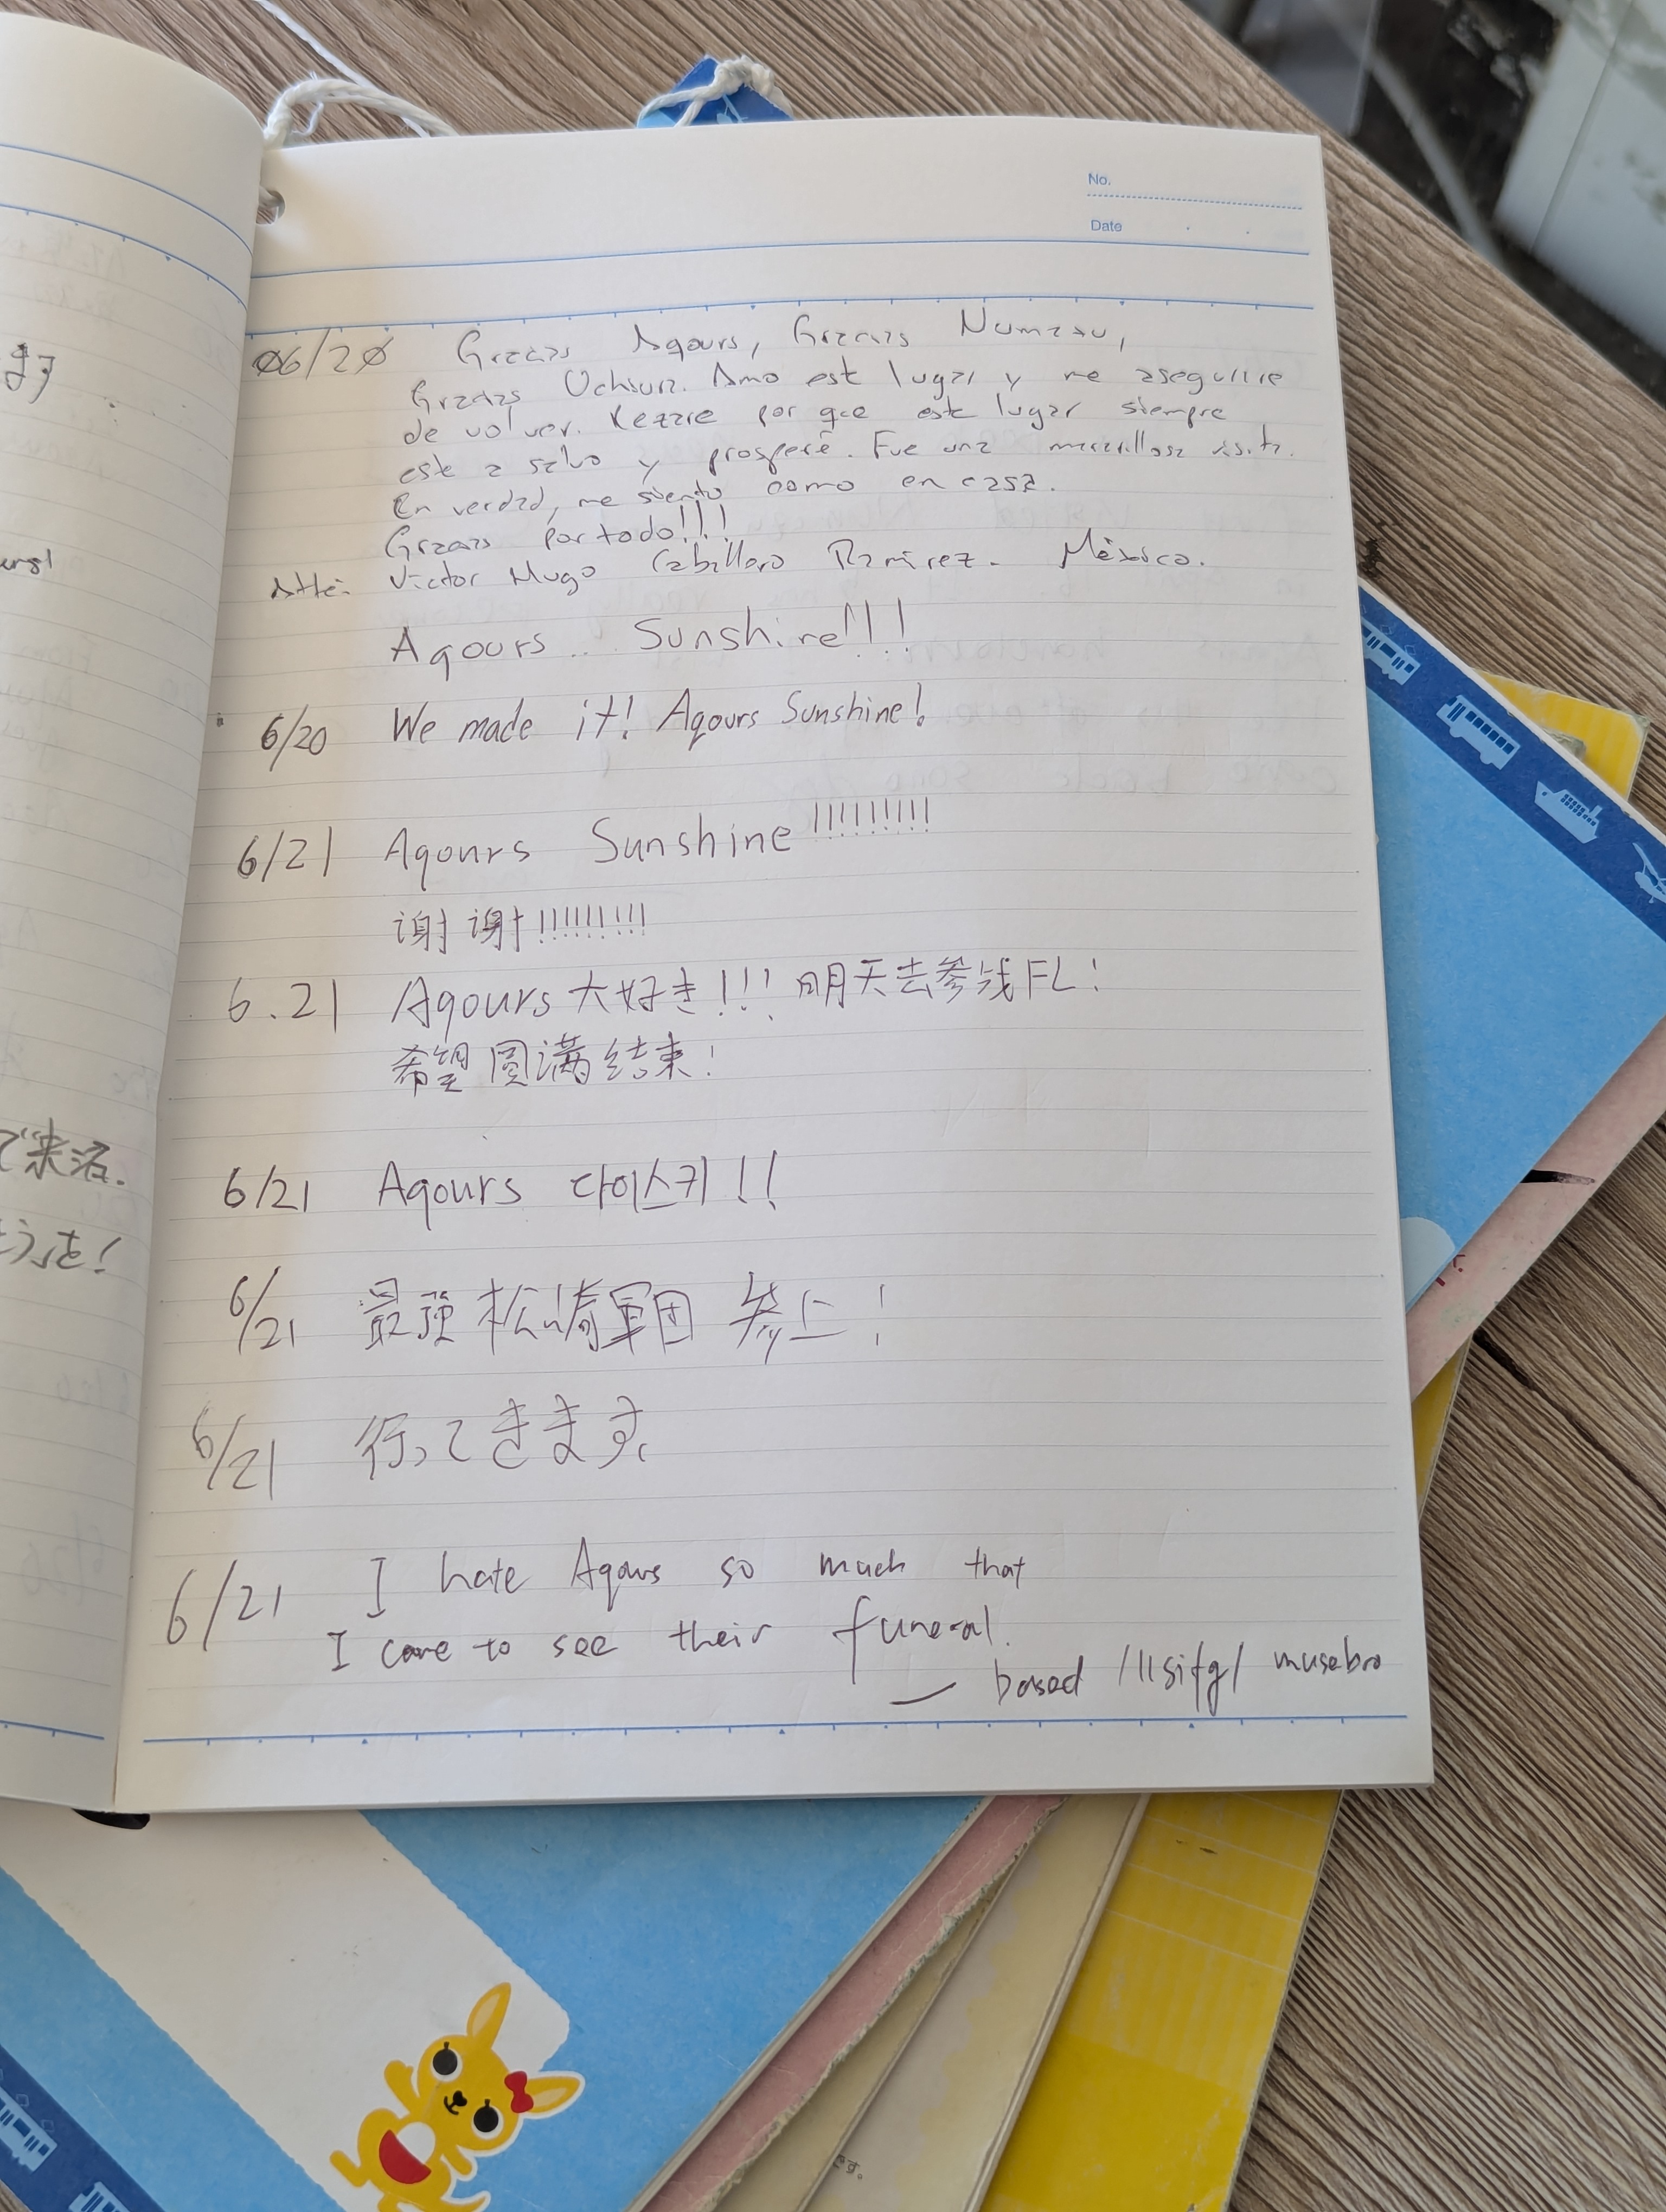 No.
Date
06/20 Gracias Aqours, Gracias Numazu,
Gracias Uchiura. Amo este lugar y me asegurire
de volver. Rezare por que este lugar siempre
este a salvo y prospere. Fue una maravillosa visita.
En verdad, me siento como en casa.
Gracias por todo!!!
Atte: Victor Hugo Caballero Ramirez. México.
Aqours... Sunshine!!!
6/20 We made it! Aqours Sunshine!
6/21 Aqours Sunshine!!!!!!!!!
谢谢!!!!!!!!!
6.21 Aqours大好き!!! 明天去参战FL!
希望圆满结束!
6/21 Aqours 다이스키!!
6/21 最強松崎軍団 参上!
6/21 行ってきます。
6/21 I hate Aqours so much that
I come to see their funeral.
— based /llsifg/ musebro
で来沼.
うを!
です。